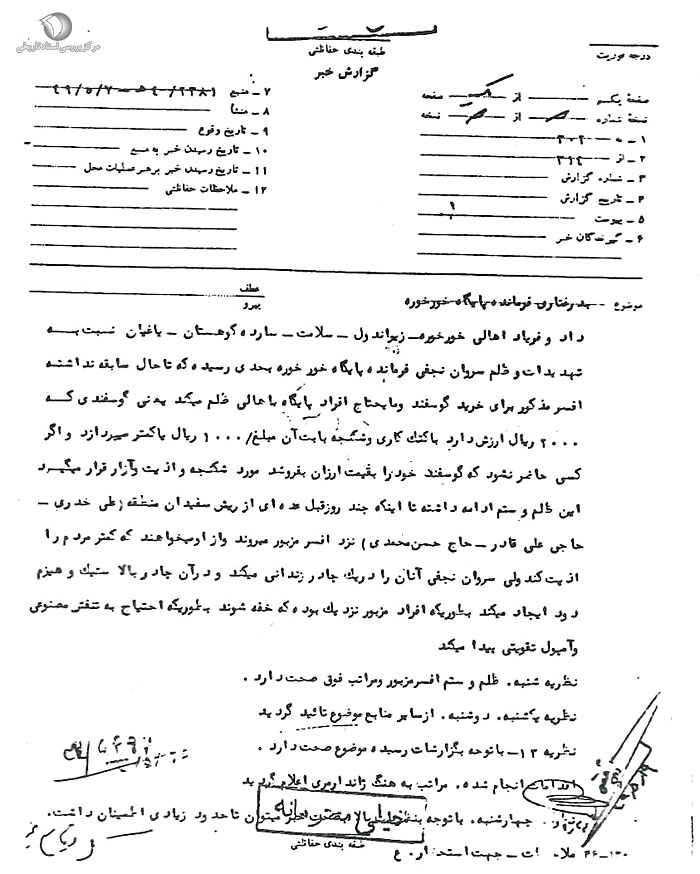 مرکز بررسی اسناد تاریخی
طبقه بندی حفاظتی
گزارش خبر
درجه فوریت
صفحه یک از یک صفحه
نسخه شماره از نسخه
۱ - به ۳۰۲
۲ - از ۳۱۴
۳ - شماره گزارش
۴ - تاریخ گزارش
۵ - پیوست
۶ - گیرندگان خبر
۷ - منبع
۸ - منشا
۹ - تاریخ وقوع
۱۰ - تاریخ رسیدن خبر به منبع
۱۱ - تاریخ رسیدن خبر برهبر عملیات محل
۱۲ - ملاحظات حفاظتی
عطف
پیرو
موضوع بدرفتاری فرمانده پایگاه خورخوره
داد و فریاد اهالی خورخوره - زیواندول - سلامت - سارده کوهستان - یاغیان نسبت به
تهدیدات و ظلم سروان نجفی فرمانده پایگاه خور خوره بحدی رسیده که تاحال سابقه نداشته
افسر مذکور برای خرید گوسفند ومایحتاج افراد پایگاه باهالی ظلم میکند یعنی گوسفندی که
۲۰۰۰ ریال ارزش دارد باکتک کاری وشکنجه بابت آن مبلغ/۱۰۰۰ ریال یاکمتر میپردازد و اگر
کسی حاضر نشود که گوسفند خود را بقیمت ارزان بفروشد مورد شکنجه و اذیت وآزار قرار میگیرد
این ظلم و ستم ادامه داشته تا اینکه چند روزقبل عده ای از ریش سفیدان منطقه (علی خدری -
حاجی علی قادر - حاج حسن محمدی) نزد افسر مزبور میروند واز اومیخواهند که کمتر مردم را
اذیت کند ولی سروان نجفی آنان را دریک چادر زندانی میکند و درآن چادر بالاستیک و هیزم
دود ایجاد میکند بطوریکه افراد مزبور نزدیک بوده که خفه شوند بطوریکه احتیاج به تنفس مصنوعی
وآمپول تقویتی پیدا میکند
نظریه شنبه. ظلم و ستم افسرمزبور ومراتب فوق صحت دارد.
نظریه یکشنبه. دوشنبه. ازسایر منابع موضوع تائید گردید
نظریه ۱۳- باتوجه بگزارشات رسیده موضوع صحت دارد.
اقدامات انجام شده. مراتب به هنگ ژاندارمری اعلام گردید
چهارشنبه. باتوجه میتوان تاحدود زیادی اطمینان داشت.
خیلی محرمانه
طبقه بندی حفاظتی
جهت استحضار. ع